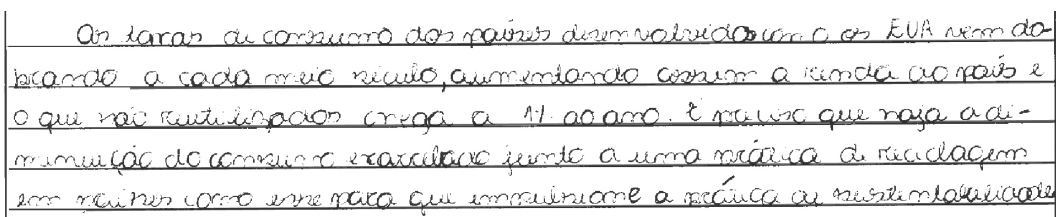 As taxas de consumo dos países desenvolvidos como os EUA vem do-
brando a cada meio século, aumentando assim a renda do país e
o que não reutilizados chega a 1% ao ano. É preciso que haja a di-
minuição do consumo exarcebado junto a uma prática de reciclagem
em países como esse para que impulsione a prática de sustentabilidade